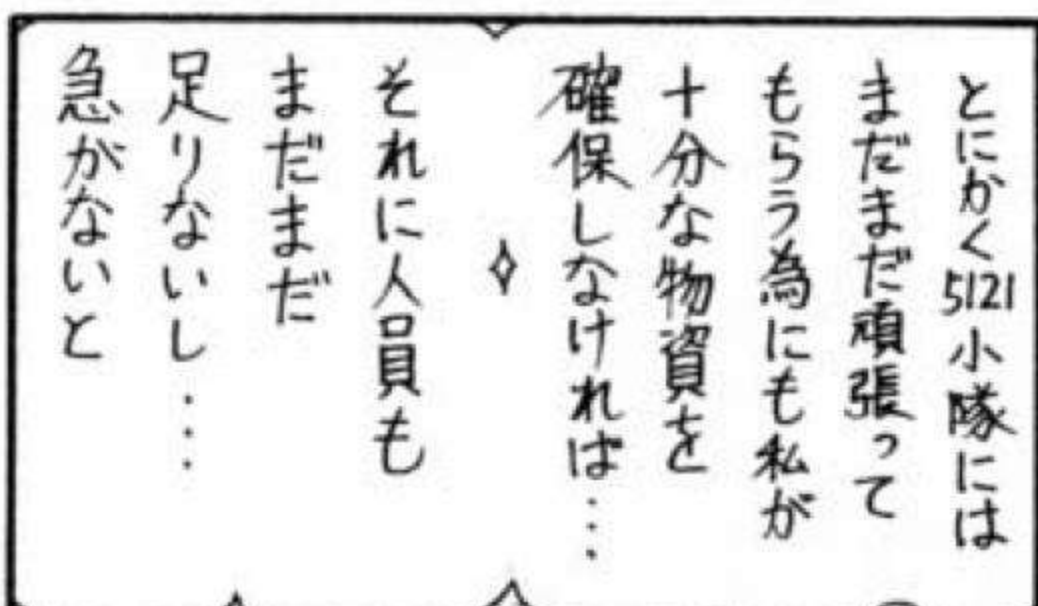 とにかく5121小隊には
まだまだ頑張って
もらう為にも私が
十分な物資を
確保しなければ...
それに人員も
まだまだ
足りないし...
急がないと